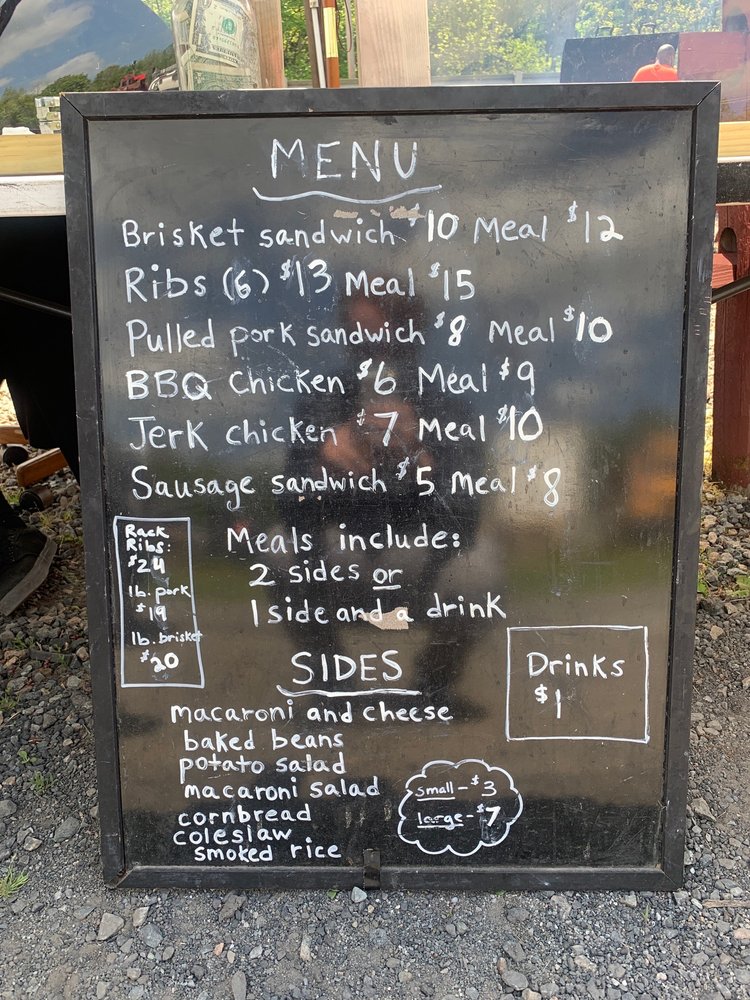 MENU
Brisket sandwich $10 Meal $12
Ribs (6) $13 Meal $15
Pulled pork sandwich $8 Meal $10
BBQ chicken $6 Meal $9
Jerk chicken $7 Meal $10
Sausage sandwich $5 Meal $8
Rack
Ribs:
$24
lb. pork
$19
lb. brisket
$20
Meals include:
2 sides or
1 side and a drink
Drinks
$1
SIDES
macaroni and cheese
baked beans
potato salad
macaroni salad
cornbread
coleslaw
smoked rice
small - $3
large - $7